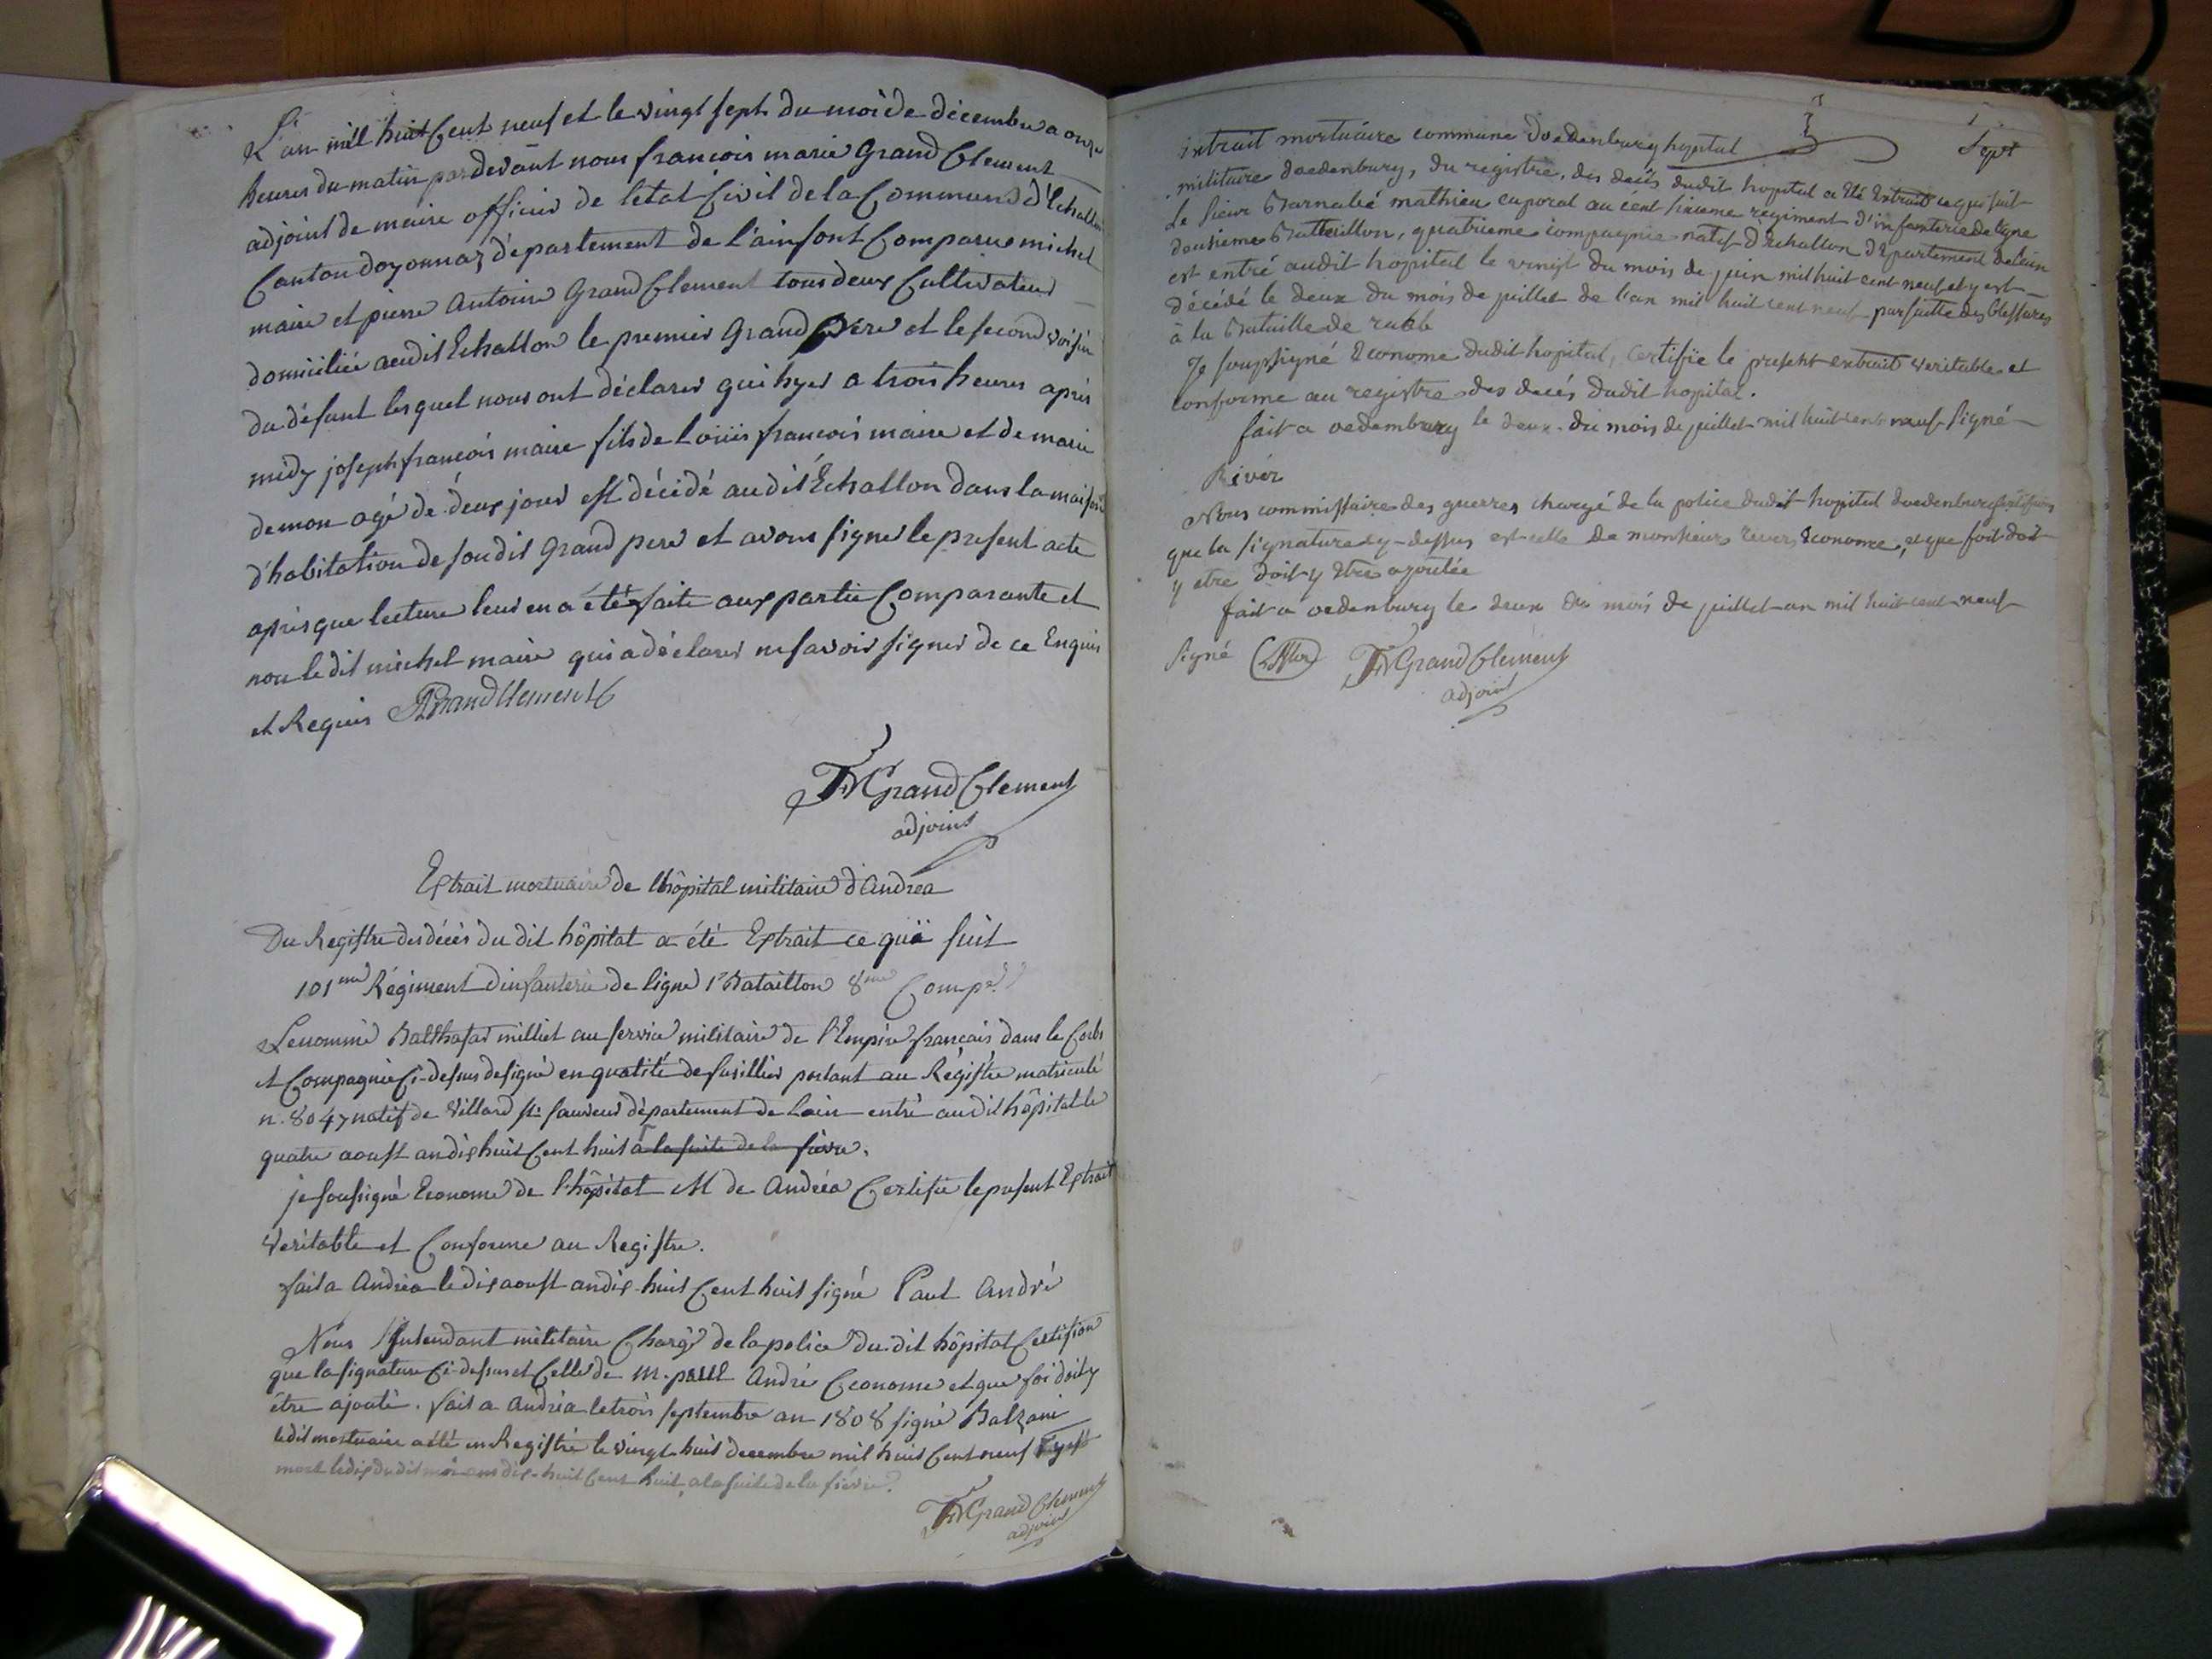 L'an mil huit Cent neuf et le vingt sept du moi de décembre a onze
heures du matin pardevant nous francois marie Grand Clement
adjoint de maire officier de letat Civil de la Commune d'Echallon
Canton doyonnaz département de l'ain sont Comparus michel
maire et pierre Antoine Grand Clement tous deux Cultivateur
domiciliée audit Echallon le premier Grand Pere et le second voisin
du défunt lesquel nous ont déclarer qui hyer a trois heures après
midy joseph francois maire fils de Louis francois maire et de marie
demon agé de deux jour est décédé audit Echallon dans la maison
d'habitation de son dit Grand pere et avons signer le present acte
après que lecture leur en a été faite aux partie Comparante et
non le dit michel maire qui a déclarer ne savoir signer de ce Enquis
et Requis AGrandClement
FMGrandClement
adjoint
Extrait mortuaire de l'hôpital militaire d'Andrea
Du Registre des décès du dit hôpital a été Extrait ce qui suit
101me Régiment d'infanterie de ligne 1r Bataillon 8me Compe
Le nommé Balthasar milliet au service militaire de l'Empire français dans le Corbs
et Compagnie Ci-dessus designé en qualité de fusillier portant au Régistre matriculé
n. 8047 natif de Villard st sauveur département de lain entré audit hôpital le
quatre aoust an dix huit Cent huit a la suite de la fievre.
je soussigné Econome de l'hôpital M de Andréa Certifie le present Extrait
Veritable et Conforme au Registre.
fait a Andréa le dix aoust an dix-huit Cent huit signé Paul André
Nous Intendant militaire Chargé de la police du dit hôpital Certifion
que la signature Ci-dessus et Celle de m. paul André Econome et que foi doit y
être ajouté. fait a Andréa le trois septembre an 1808 signé Balzani
ledit mortuaire a été enRegistré le vingt-huit decembre mil huit Cent neuf Γ y est
mort le dix du dit moi an dix-huit Cent huit a la suite de la fiévre
FMGrandClement
adjoint
Sept
extrait mortuaire commune doedenburg hopital
militaire doedenburg, du registre, des decès dudit hopital a été Extrait ce qui suit
Le sieur Barnabé mathieu caporal au cent sixieme regiment d'infanterie de ligne
douxieme Battaillon, quatrieme compagnie natif d'Echallon département de lain
est entré audit hopital le vingt du mois de juin mil huit cent neuf et y est
décédé le deux du mois de juillet de l'an mil huit cent neuf par suitte des blessures
à la Bataille de raab
Je soussigné Econome dudit hopital, certifie le present extrait veritable et
conforme au registre des decés dudit hopital.
fait a oedemburg le deux du mois de juillet mil huit cent neuf signé
Rivér
Nous commissaire des guerres chargé de la police dudit hopital doedenburg certifions
que la signature cy-dessus est celle de monsieur river Econome, et que foit doit
y etre doit y être ajoutée
fait a oedenburg le deux du mois de juillet an mil huit cent neuf
signé FMGrandClement
adjoint